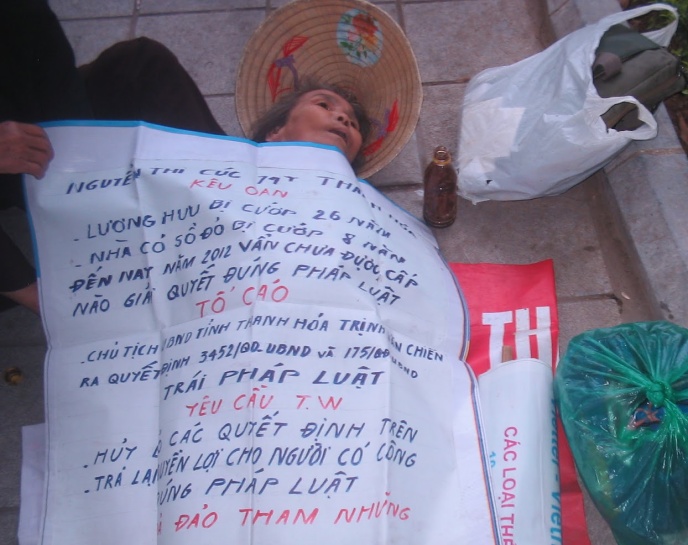 NGUYỄN THỊ CÚC 79T THANH HÓA
KÊU OAN
- LƯƠNG HƯU BỊ CƯỚP 26 NĂM
- NHÀ CÓ SỔ ĐỎ BỊ CƯỚP 8 NĂM
ĐẾN NAY NĂM 2012 VẪN CHƯA ĐƯỢC CẤP
NÀO GIẢI QUYẾT ĐÚNG PHÁP LUẬT
TỐ CÁO
- CHỦ TỊCH UBND TỈNH THANH HÓA TRỊNH CHIẾN
RA QUYẾT ĐỊNH 3452/QĐ-UBND VÀ 175/QĐ UBND
TRÁI PHÁP LUẬT
YÊU CẦU T.W
- HỦY CÁC QUYẾT ĐỊNH TRÊN
- TRẢ LẠI QUYỀN LỢI CHO NGƯỜI CÓ CÔNG
ĐÚNG PHÁP LUẬT
ĐẢ ĐẢO THAM NHŨNG
TH
CÁC LOẠI THẺ